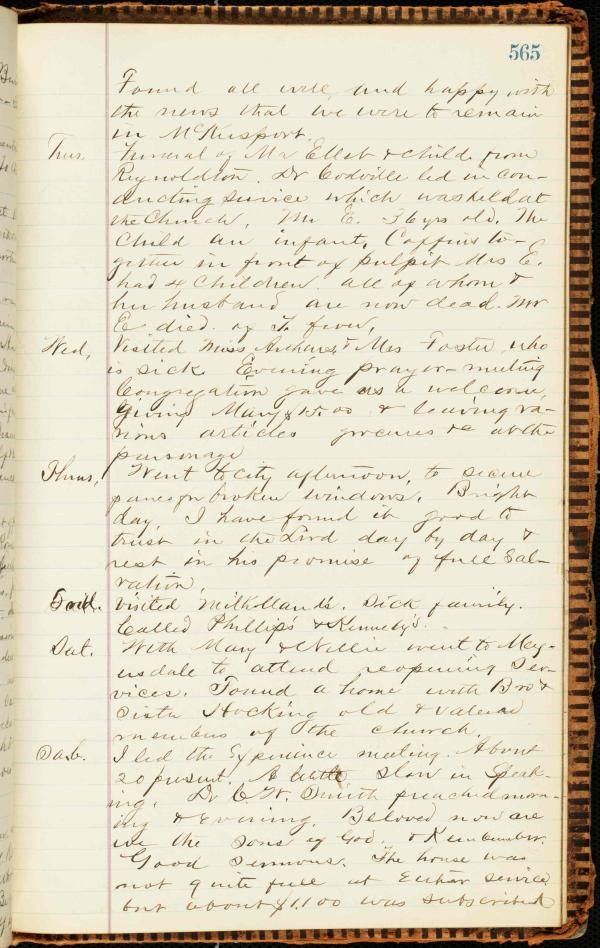 565
Found all well, and happy with
the news that we were to remain
in McKeesport.
Tues. Funeral of Mr Elleb & child from
Reynoldton. Dr Codville led in con-
ducting service which was held at
the Church, Mr E. 36 yrs old. The
Child an infant, Coffins to-
gether in front of pulpit Mrs E.
had 4 children. all of whom &
her husband are now dead. Mr
E died of T. fever,
Wed, Visited Miss & Mrs Foster, who
is sick Evening prayer-meeting
Congregation gave us a welcome,
giving Mary $15.00 & leaving va-
rious articles groceries &c at the
parsonage
Thurs, Went to city afternoon, to secure
panes for broken windows. Bright
day, I have found it good to
trust in the Lord day by day &
rest in his promise of full Sal-
vation,
Frid. Visited Milholland's. Sick family.
Called Phillips' & Kennedy's.
Sat. With Mary & Nellie went to Mey-
ersdale to attend reopening Ser-
vices. Found a home with Bro &
Sister Hocking old & valued
members of the church.
Sab. I led the Experience meeting. About
20 present. A little slow in Speak-
ing. Dr C. W. Smith preached morn-
ing & Evening. Beloved now are
we the Sons of God, & Remember.
Good Sermons. The house was
not quite full at Either Service
but about $1100 was subscribed